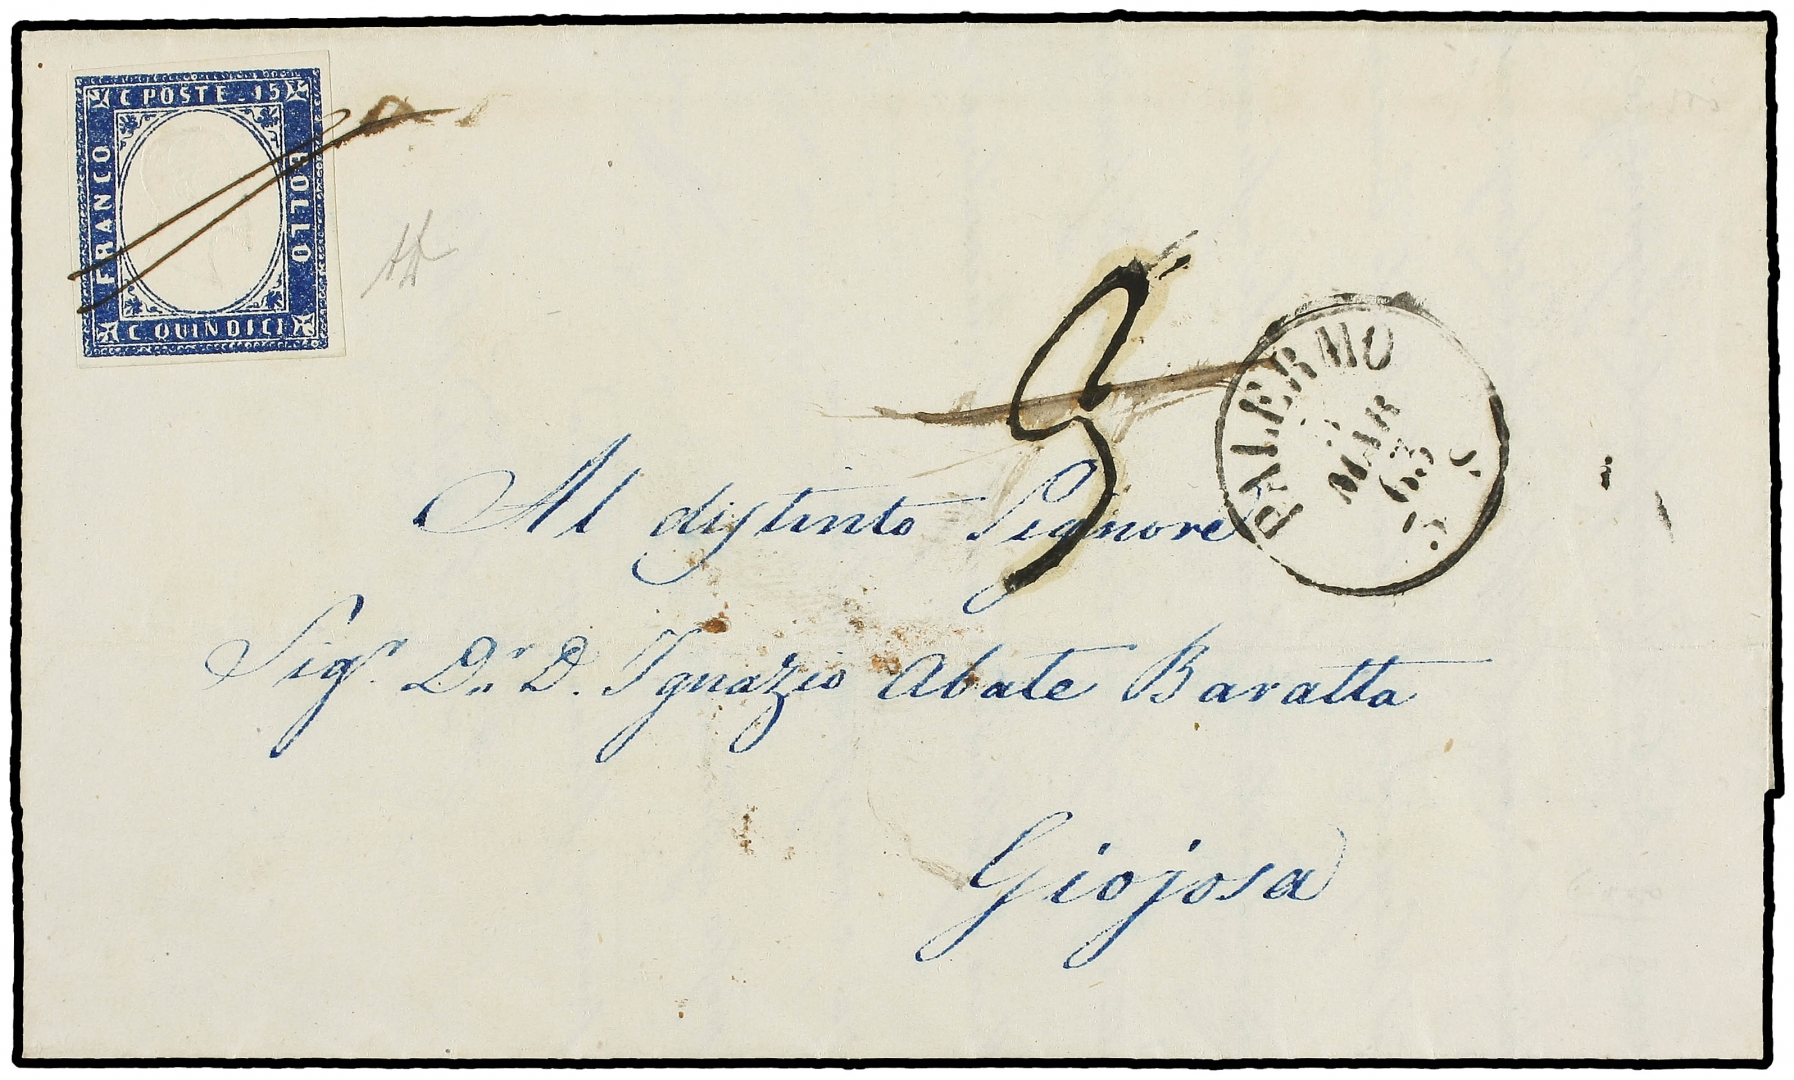 C POSTE. 15
FRANCO
BOLLO
C. QUINDICI
PALERMO
MAR
63
5 S
Al distinto Signore
Sig.r D.r D. Ignazio Abate Baratta
Giojosa